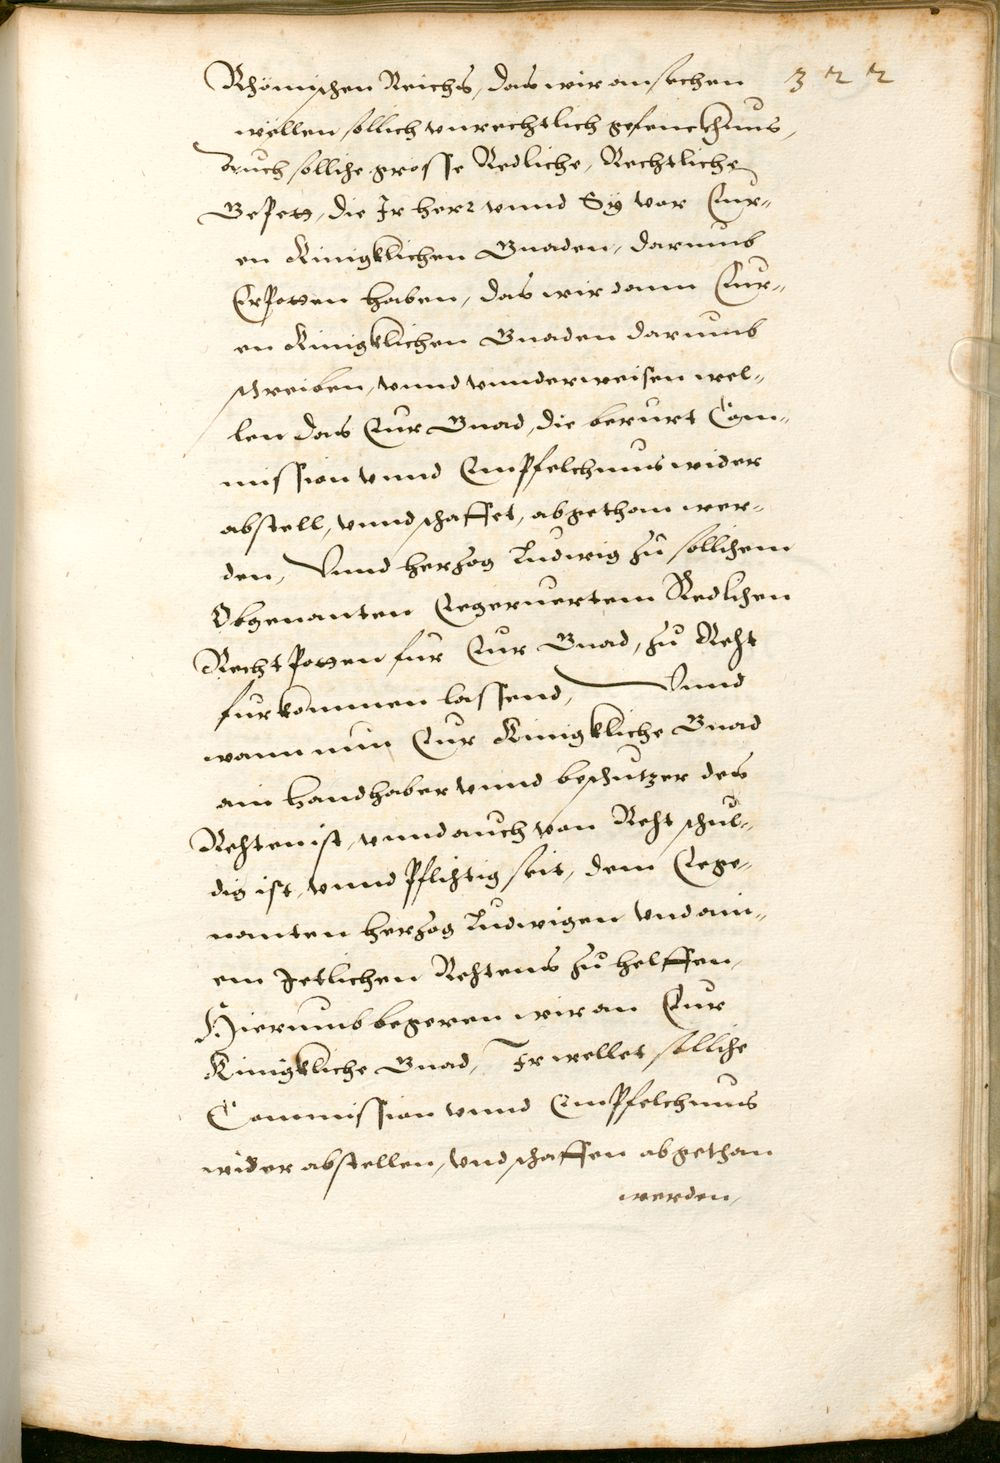 Rhömischen Reichs, das wir ansechen 322
wöllen sollich vnrechtlich gefencknus,
Auch solliche grosse Redliche, Rechtliche
Gepott, die Ir herr vnnd Sÿ vor Eur-
en Künigklichen Gnaden, darumb
Erpotten haben, das wir dann Eur-
en Künigklichen Gnaden darumb
schreiben, vnnd vnnderweisen wel-
len das Eur Gnad, die berurt Com-
mission vnnd Empfelchnus wider
abstell, vnnd schaffet, abgethan wer-
den, Vnnd hertzog Ludwig zu sollichem
Obgenanten Egeruertem Redlichen
Rechtpotten fur Eur Gnad, zu Reht
furkommen lassend, Vnnd
wann nun Eur Künigkliche Gnad
ain handhaber vnnd beschutzer des
Rehten ist, vnnd auch von Reht schul-
dig ist, vnnd pflichtig seit, dem Ege-
nanten hertzog Ludwigen vnd ain-
em Jetlichen Rehtens zu helffen,
Hierumb begeren wir an Eur
Künigkliche Gnad, Ir wellet solliche
Commission vnnd Empfelchnus
wider abstellen, vnd schaffen abgethan
werden,